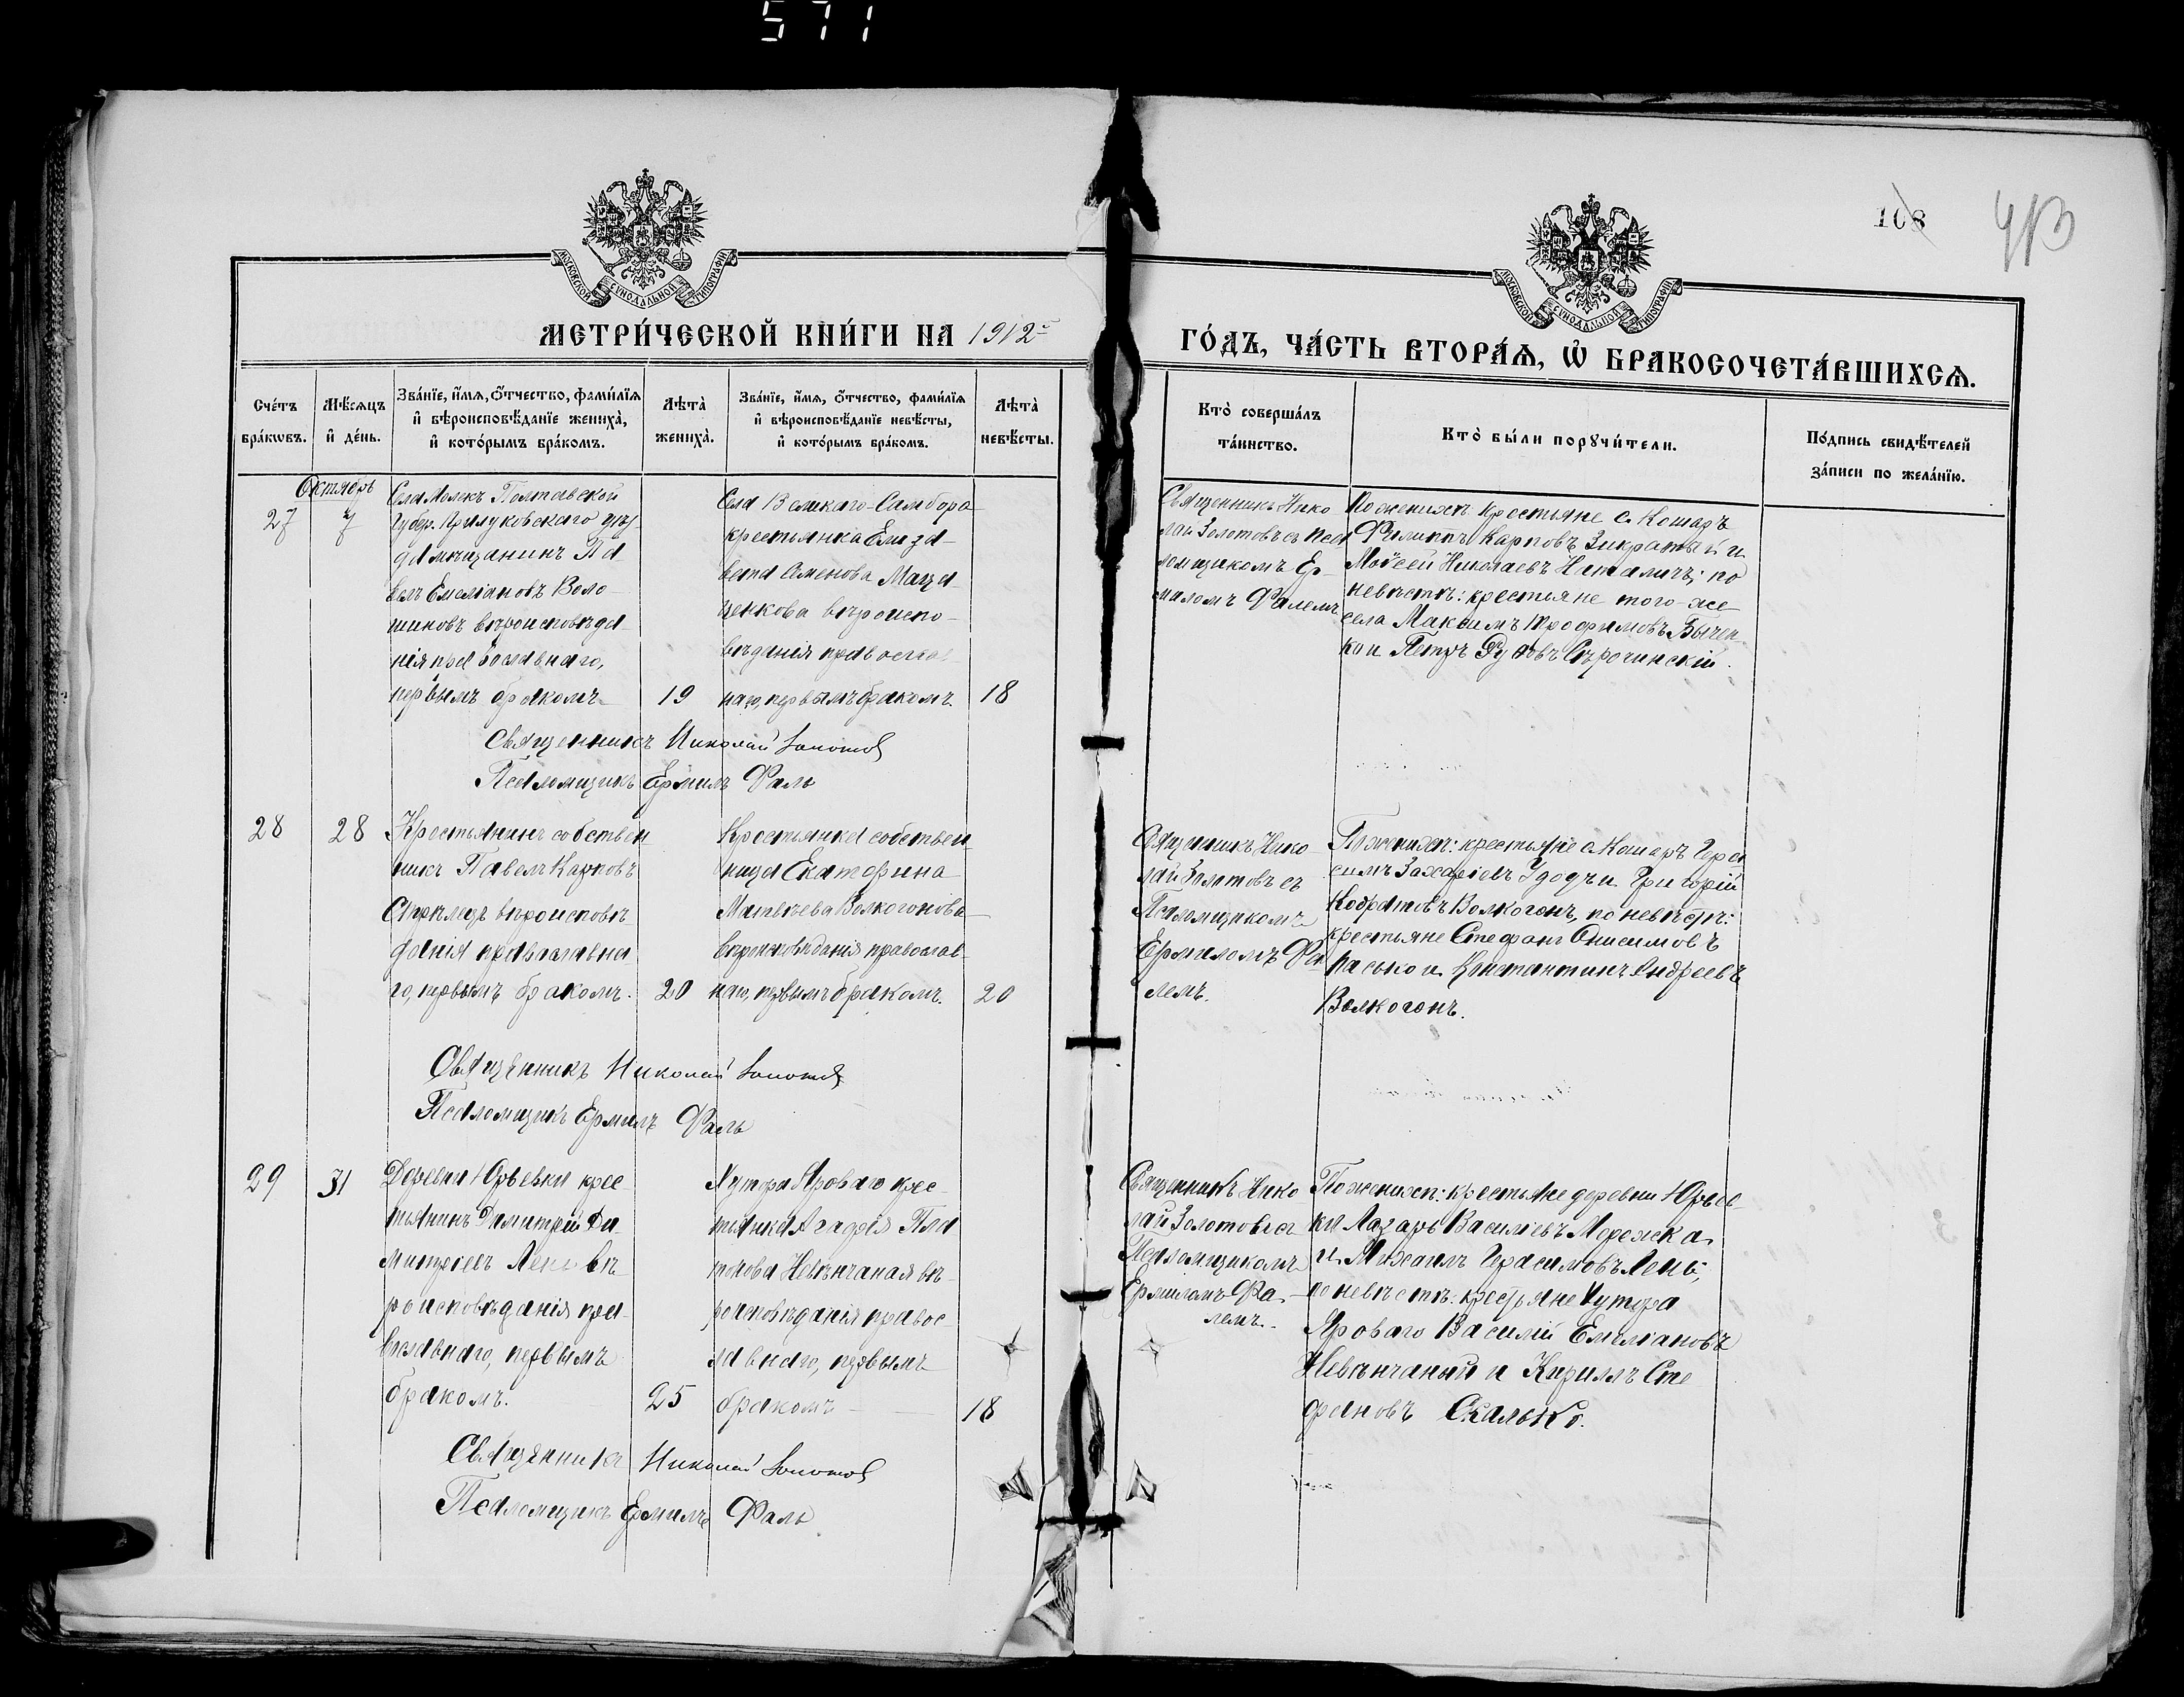 571
108
413
МОСКОВСКОЙ СУНОДАЛЬНОЙ ТИПОГРАФІИ
МОСКОВСКОЙ СУНОДАЛЬНОЙ ТИПОГРАФІИ
МЕТРИ́ЧЕСКОЙ КНИ́ГИ НА 1912й
ГО́ДЪ, ЧА́СТЬ ВТОРА́Ѧ, Ѽ БРАКОСОЧЕТА́ВШИХСѦ.
Сче́тъ
бра́кѡвъ.
Мѣ́сѧцъ
и҆ де́нь.
Зва́нїе, и҆́мѧ, ѻ҆́тчество, фами́лїѧ
и҆ вѣроисповѣ́данїе жениха̀,
и҆ кото́рымъ бра́комъ.
Лѣта̀
жениха̀.
Зва́нїе, и҆́мѧ, ѻ҆́тчество, фами́лїѧ
и҆ вѣроисповѣ́данїе невѣ́сты,
и҆ кото́рымъ бра́комъ.
Лѣта̀
невѣ́сты.
Кто̀ соверша́лъ
та́инство.
Кто̀ бы́ли порꙋчи́тели.
По́дпись свидѣ́телей
за́писи по жела́нїю.
Октябрь
27
7
Села Молекъ Полтавской
Губер. Прилуковскаго уѣз
да мѣщанинъ Па
велъ Емеліановъ Воло
шиновъ вѣроисповѣда
нія православнаго,
первымъ бракомъ
19
Села Великаго-Самбора
крестьянка Елиза
вета Семенова
вѣроиспо
вѣданія православ
наго, первымъ бракомъ
18
Священникъ Нико
лай Золотовъ съ Пса
ломщикомъ Ер
миломъ Фалемъ
По женихѣ крестьяне с. Кошаръ
Филиппъ Карповъ Закратый и
Моѵсей Николаевъ Наталичъ; по
невѣстѣ: крестьяне того-же
села Максимъ Трофимовъ Быченко
и Петръ Сѣрочинскій.
Священникъ Николай Золотов
Псаломщикъ Ермилъ Фаль
28
28
Крестьянинъ собствен
никъ Павелъ Карповъ
Стрѣлецъ вѣроисповѣ
данія православна
го, первымъ бракомъ.
20
Крестьянка собствен
ница Екатерина
Матвѣева Волкогонова
вѣроисповѣданія православ
наго, первымъ бракомъ.
20
Священникъ Нико
лай Золотовъ съ
Псаломщикомъ
Ермиломъ Фа
лемъ.
По женихѣ: крестьяне с. Кошаръ Гера
симъ Захаріевъ Удодъ и Григорій
Кодратовъ Волкогонъ, по невѣстѣ:
крестьяне Стефанъ Онисимовъ
Пасько и Константинъ Андреевъ
Волкогонъ.
Священникъ Николай Золотов
Псаломщикъ Ермилъ Фаль
29
31
Деревни Юрьевки крес
тьянинъ Димитрій Ди
митріевъ Лень вѣ
роисповѣданія пра
вославнаго, первымъ
бракомъ.
25
Хутора Яроваго крес
тьянка Агафія Пла
тонова Невѣнчаная вѣ
роисповѣданія правос
лавнаго, первымъ
бракомъ
18
Священникъ Нико
лай Золотовъ съ
Псаломщикомъ
Ермиломъ Фа
лемъ.
По женихѣ: крестьяне деревни Юрьев
ки Лазарь Василіевъ Мережка
и Михаилъ Герасимовъ Лень;
по невѣстѣ: крестьяне хутора
Яроваго Василій Емиліановъ
Невѣнчаный и Кириллъ Сте
фановъ Скалько.
Священникъ Николай Золотов
Псаломщикъ Ермилъ Фаль